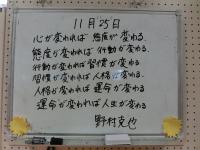 11月25日
心が変われば 態度が変わる
態度が変われば 行動が変わる
行動が変われば習慣が変わる
習慣が変われば人格が変わる
人格が変われば運命が変わる
運命が変われば人生が変わる
野村克也